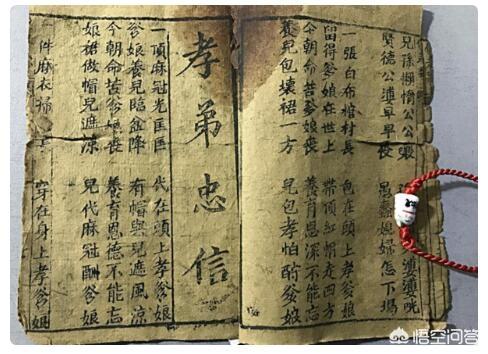 賢德公婆早早喪　愚蠢媳婦怎下場
一張白布棺村長　包在頭上孝爹娘
留得爹娘在世上　帶頂紅帽走四方
今朝命苦爹娘喪　養育恩深不能忘
養兒包壞裙一方　兒包孝怕酧爹娘
孝弟忠信
一頂麻冠光匡匡　代在頭上孝爹娘
爹娘養兒臨盆降　有帽與兒遮風涼
今朝命苦爹娘喪　養育恩德不能忘
娘裙做帽兒遮涼　兒代麻冠酬爹娘
件麻衣　穿在身上孝爹娘
悟空问答